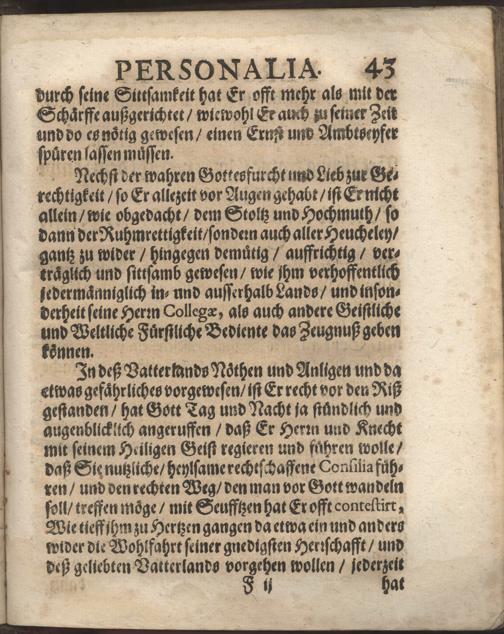 PERSONALIA. 43
durch seine Sittsamkeit hat Er offt mehr als mit der
Schärffe außgerichtet / wiewohl Er auch zu seiner Zeit
und do es nötig gewesen / einen Ernst und Ambtseyfer
spüren lassen müssen.
Nechst der wahren Gottesfurcht und Lieb zur Ge-
rechtigkeit / so Er allezeit vor Augen gehabt / ist Er nicht
allein / wie obgedacht / dem Stoltz und Hochmuth / so
dann der Ruhmrettigkeit / sondern auch aller Heucheley /
gantz zu wider / hingegen demütig / auffrichtig / ver-
träglich und sittsamb gewesen / wie ihm verhoffentlich
jedermänniglich in- und ausserhalb Lands / und inson-
derheit seine Herrn Collegæ, als auch andere Geistliche
und Weltliche Fürstliche Bediente das Zeugnuß geben
können.
In deß Vatterlands Nöthen und Anligen und da
etwas gefährliches vorgewesen / ist Er recht vor den Riß
gestanden / hat Gott Tag und Nacht ja stündlich und
augenblicklich angeruffen / daß Er Herrn und Knecht
mit seinem Heiligen Geist regieren und führen wolle /
daß Sie nutzliche / heylsame rechtschaffene Consilia füh-
ren / und den rechten Weg / den man vor Gott wandeln
soll / treffen möge / mit Seufftzen hat Er offt contestirt,
Wie tieff ihm zu Hertzen gangen da etwa ein und anders
wider die Wohlfahrt seiner gnedigsten Herrschafft / und
deß geliebten Vatterlands vorgehen wollen / jederzeit
F ij hat